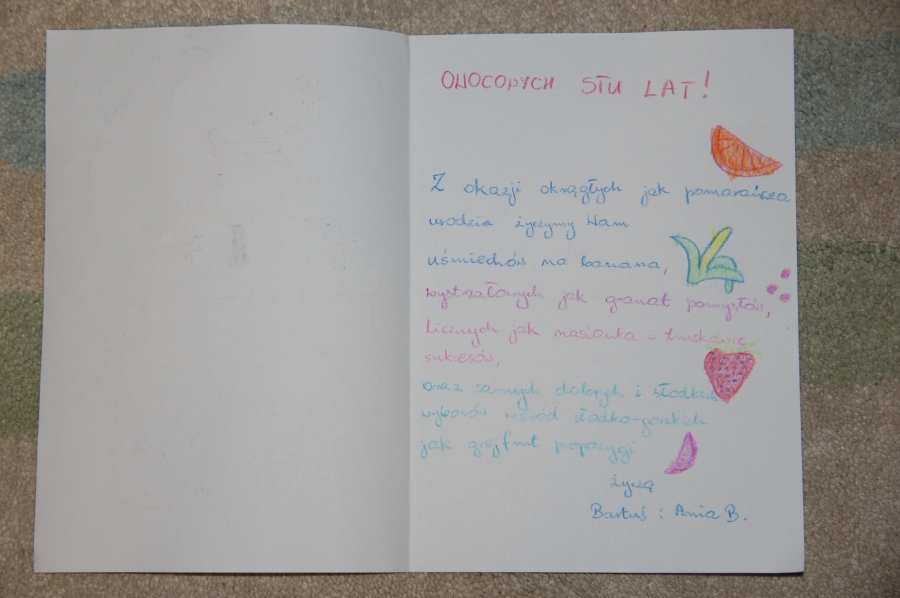 OWOCOWYCH STU LAT!
Z okazji okrągłych jak pomarańcza
urodzin życzymy Wam
uśmiechów na banana,
wystrzałowych jak granat pomysłów,
licznych jak nasionka u truskawic
sukcesów,
oraz samych dobrych i słodkich
wyborów wśród słodko-gorzkich
jak grejfrut propozycji
życzą
Bartuś i Ania B.